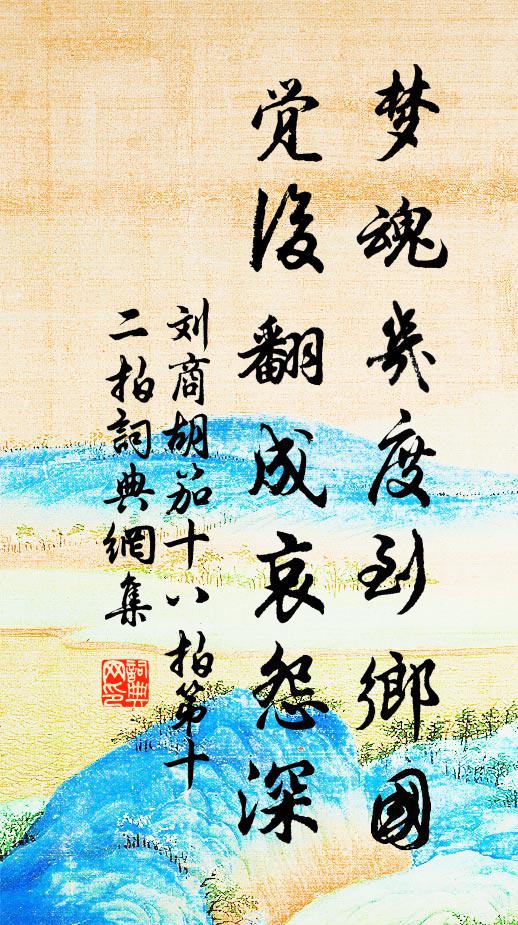 梦魂幾度到鄉國
覺後翻成哀怨深
刘商胡笳十八拍第十
二拍詞典網集
詞典
网印